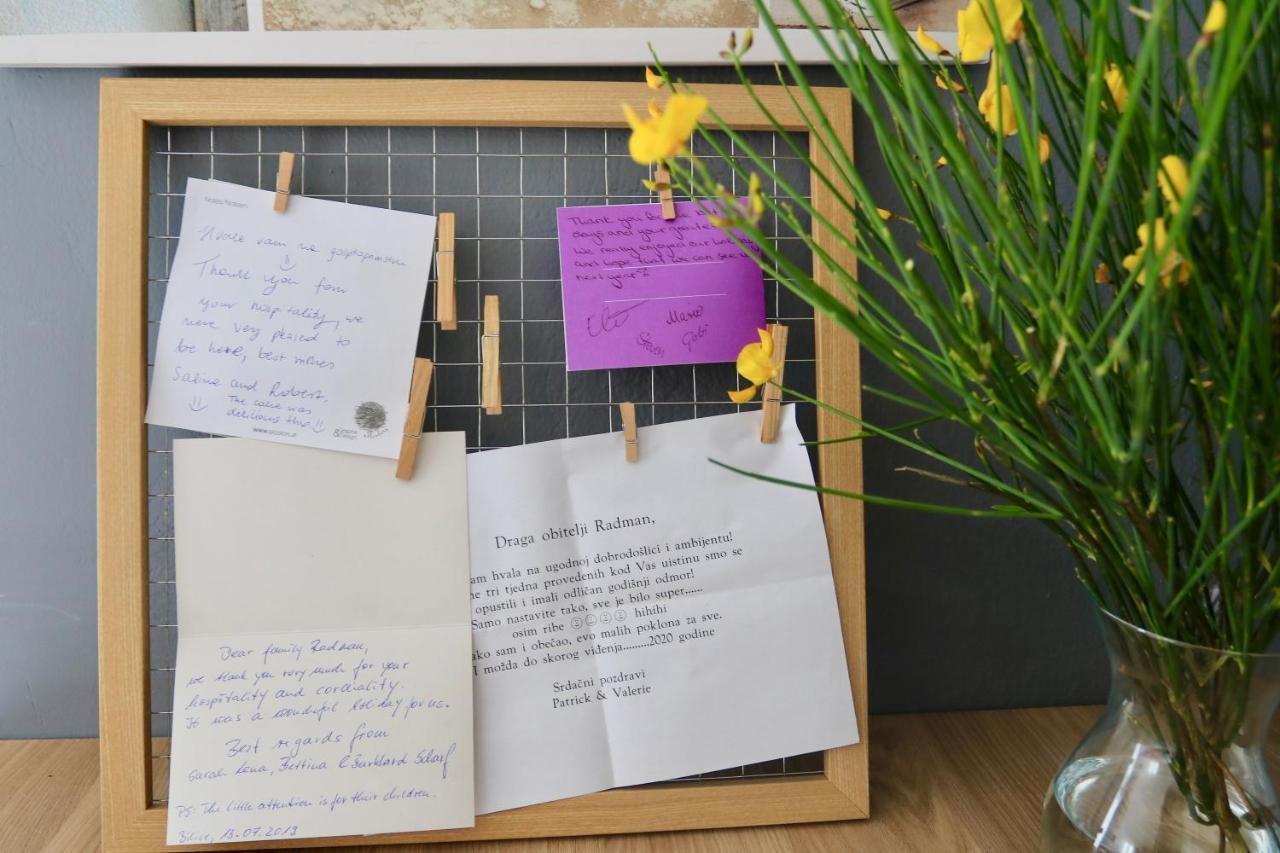 Notes/Notizen
Hvala vam na
Thank you for
your hospitality, we
were very pleased to
be here, best wishes
Sabina and Robert.
The cake was
delicious
Thank you
days and your
We really enjoyed our
and hope that we can see
next year?
Mario
Steven Gabi
Draga obitelji Radman,
am hvala na ugodnoj dobrodošlici i ambijentu!
ne tri tjedna provedenih kod Vas uistinu smo se
opustili i imali odličan godišnji odmor!
Samo nastavite tako, sve je bilo super......
osim ribe ☺☺☺☺ hihihi
ako sam i obečao, evo malih poklona za sve.
I možda do skorog viđenja.........2020 godine
Srdačni pozdravi
Patrick & Valerie
Dear family Radman,
we thank you very much for your
hospitality and cordiality.
It was a wonderful holiday for us.
Best regards from
Sarah Lena, Bettina & Burkhard Scharf
PS: The little attention is for their children.
Bilice, 13.07.2019